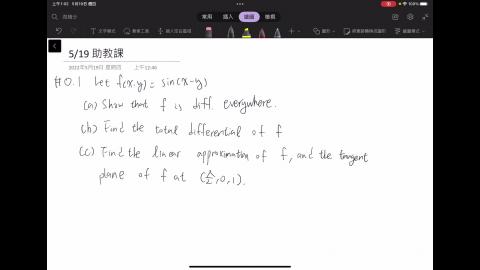 上午1:02 5月19日週四
常用 插入 繪圖 檢視
文字模式
5/19 助教課
2022年5月19日 星期四 上午12:46
#0.1 Let f(x,y) = sin(x-y)
(a) Show that f is diff. everywhere.
(b) Find the total differential of f
(c) Find the linear approximation of f, and the tangent
plane of f at (π/2, 0, 1).